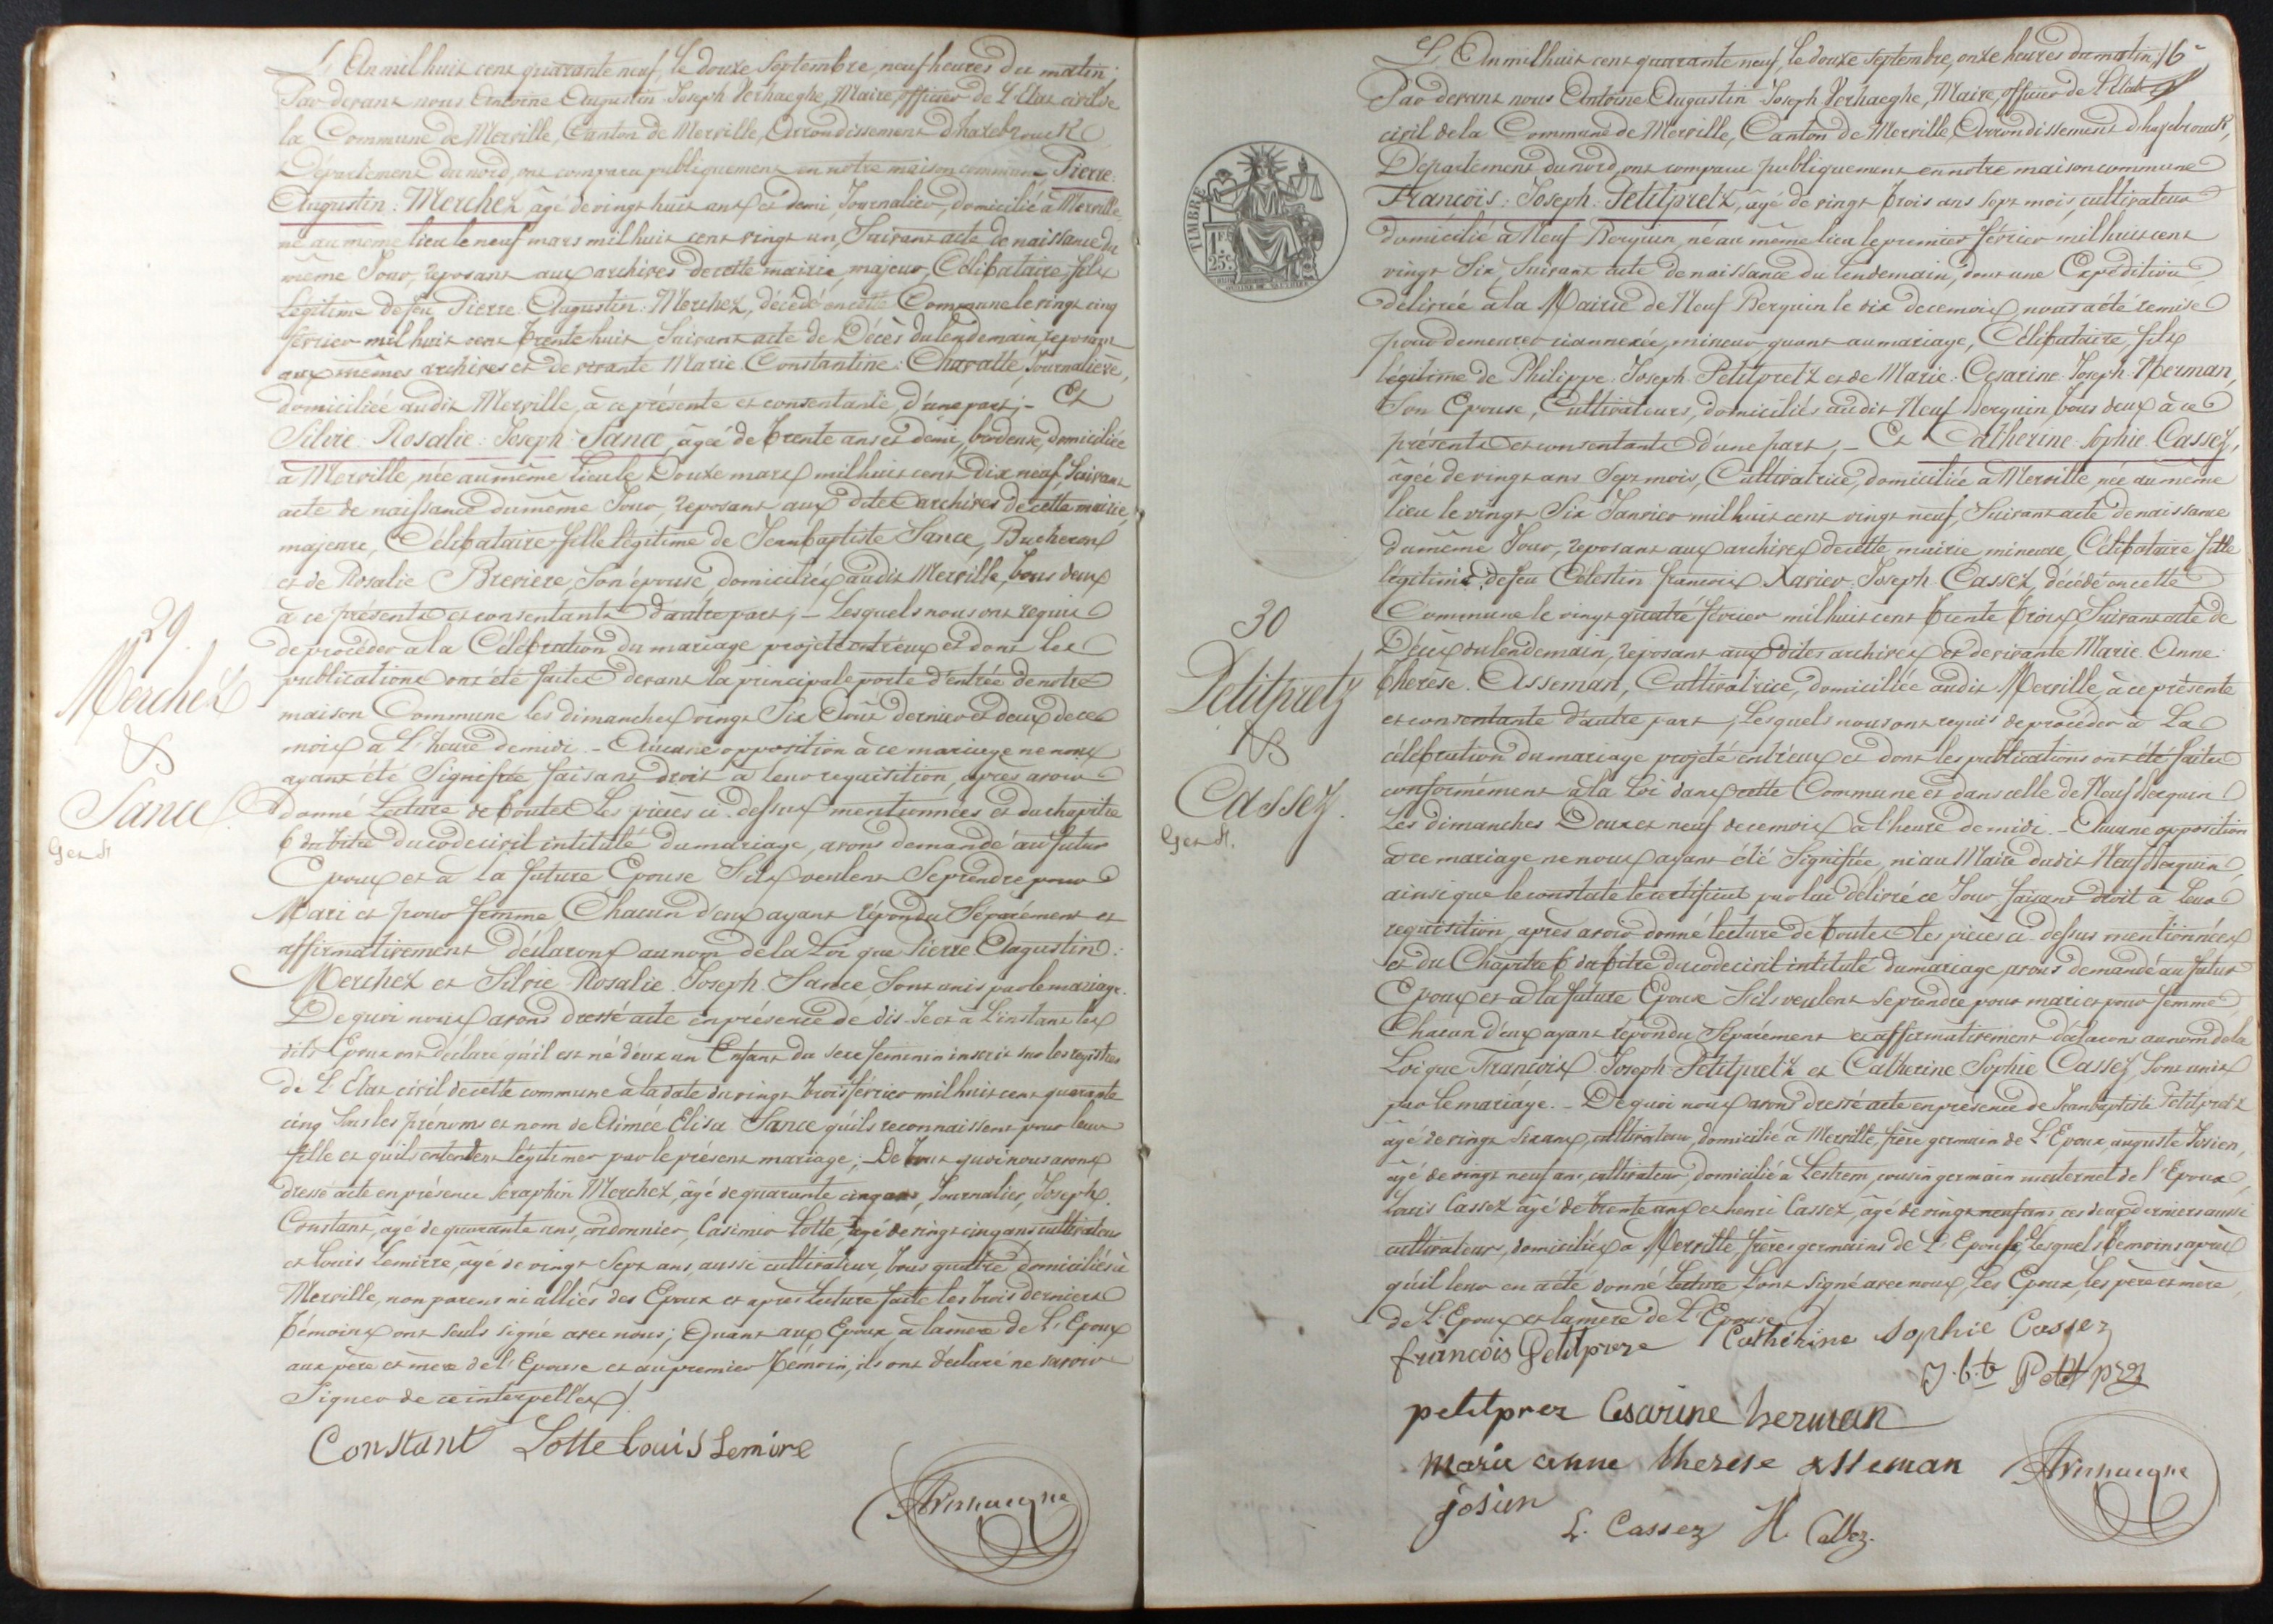 L'An mil huit cent quarante neuf, le douze Septembre, neuf heures du matin;
Par devant nous Antoine Augustin Joseph Verhaeghe, Maire, officier de L'Etat civil de
la Commune de Merville, Canton de Merville, Arrondissement d'hazebrouck
Département du nord, ont comparu publiquement en notre maison commune, Pierre
Augustin Merchez âgé de vingt huit ans et demi, Journalier, domicilié à Merville
né au même lieu le neuf mars mil huit cent vingt un, Suivant acte de naissance du
même Jour, reposant aux archives de cette mairie, majeur, Célibataire fils
Légitime de feu Pierre Augustin Merchez, décédé en cette Commune le vingt cinq
février mil huit cent trente huit Suivant acte de Décès du lendemain, reposant
aux mêmes archives et de vivante Marie Constantine Chavatte, Journalière,
domiciliée audit Merville, à ce présente et consentante, d'une part; - Et
Silvie Rosalie Joseph Sance, âgée de trente ans et demi, brodeuse, domiciliée
à Merville, née au même lieu le Douze mars mil huit cent Dix neuf, Suivant
acte de naissance du même Jour, reposant aux dites archives de cette mairie,
majeure, Célibataire fille légitime de Jean baptiste Sance, Bucheron
et de Rosalie Breviere Son épouse domiciliés audit Merville, tous deux
à ce présents et consentants d'autre part; - Lesquels nous ont requis
de procéder à la Célébration du mariage projeté entr'eux et dont les
publications ont été faites devant la principale porte d'entrée de notre
maison Commune les dimanches vingt Six Août dernier et deux de ce
mois à L'heure de midi. - Aucune opposition à ce mariage ne nous
ayant été Signifiée faisant droit à leur requisition, après avoir
donné Lecture de toutes Les pièces ci-dessus mentionnées et du chapitre
6 du titre du code civil intitulé du mariage, avons demandé au futur
Epoux et à la future Epouse S'ils veulent Se prendre pour
Mari et pour femme, Chacun d'eux ayant répondu Séparément et
affirmativement déclarons au nom de la Loi que Pierre Augustin
Merchez et Silvie Rosalie Joseph Sance Sont unis par le mariage.
De quoi nous avons dressé acte en présence de dis-Je et à L'instant les
dits Epoux ont déclaré qu'il est né d'eux un Enfant du sexe feminin inscrit sur les registres
de L'Etat civil de cette commune à la date du vingt trois février mil huit cent quarante
cinq Sous les prénoms et nom de Aimée Elisa Sance qu'ils reconnaissent pour leur
fille et qu'ils entendent légitimer par le présent mariage; De tout quoi nous avons
dressé acte en présence Séraphin Merchez, âgé de quarante cinq ans, Journalier, Joseph
Constant, âgé de quarante ans, cordonnier, Casimir Lotte, âgé de vingt cinq ans cultivateur
et Louis Lemirre, âgé de vingt Sept ans, aussi cultivateur, tous quatre domiciliés à
Merville, non parens ni alliés des Epoux et après lecture faite les trois derniers
témoins ont seuls signé avec nous; Quant aux Epoux, à la mère de L'Epoux
aux père et mère de l'Epouse et au premier témoin, ils ont déclaré ne savoir
Signer de ce interpellés /.
Constant Lotte Louis Lemire
AVerhaeghe
29.
Merchez
&
Sance
G et D
L'An mil huit cent quarante neuf, le douze Septembre, onze heures du matin, 16e
Par devant nous Antoine Augustin Joseph Verhaeghe, Maire, officier de L'Etat
civil de la Commune de Merville, Canton de Merville, Arrondissement d'hazebrouck,
Département du nord, ont comparu publiquement en notre maison commune
François Joseph Petitpretz, âgé de vingt trois ans Sept mois, cultivateur
domicilié à Neuf Berquin, né au même lieu le premier février mil huit cent
vingt Six, Suivant acte de naissance du lendemain, dont une Expédition
délivrée à la Mairie de Neuf Berquin le dix de ce mois, nous a été remise
pour demeurer ci annexée, mineur quant au mariage, Célibataire, fils
légitime de Philippe Joseph Petitpretz et de Marie Cesarine Joseph Herman,
Son Epouse, Cultivateurs, domiciliés audit Neuf Berquin, tous deux à ce
présents et consentants d'une part; - Et Catherine Sophie Cassez,
âgée de vingt ans Sept mois, Cultivatrice, domiciliée à Merville, née au même
lieu le vingt Six Janvier mil huit cent vingt neuf, Suivant acte de naissance
du même Jour, reposant aux archives de cette mairie mineure, Célibataire fille
légitime de feu Célestin francois Xavier Joseph Cassez, décédé en cette
Commune le vingt quatre février mil huit cent trente trois Suivant acte de
Décès du lendemain, reposant aux dites archives et de vivante Marie Anne
thérèse Asseman, Cultivatrice, domiciliée audit Merville à ce présente
et consentante d'autre part; Lesquels nous ont requis de procéder à La
célébration du mariage projeté entr'eux et dont les publications ont été faites
conformément à la Loi dans cette Commune et dans celle de Neuf Berquin
Les dimanches Deux et neuf de ce mois à l'heure de midi. - Aucune opposition
à ce mariage ne nous ayant été Signifiée, ni au Maire dudit Neuf Berquin,
ainsi que le constate le certificat par lui délivré ce Jour, faisant droit à leur
requisition, après avoir donné lecture de toutes les pièces ci-dessus mentionnées
et du Chapitre 6 du titre du code civil intitulé du mariage, avons demandé au futur
Epoux et à la future Epouse S'ils veulent Se prendre pour mari et pour femme,
Chacun d'eux ayant répondu Séparément et affirmativement déclarons au nom de la
Loi que François Joseph Petitpretz et Catherine Sophie Cassez, Sont unis
par le mariage. - De quoi nous avons dressé acte en présence de Jean baptiste Petitpretz
âgé de vingt six ans, cultivateur, domicilié à Merville, frère germain de L'Epoux, auguste Josien,
âgé de vingt neuf ans, cultivateur, domicilié à Lestrem, cousin germain maternel de l'Epoux,
Louis Cassez âgé de trente ans et henri Cassez, âgé de vingt neuf ans, ces deux derniers aussi
cultivateurs, domiciliés à Merville frères germains de L'Epouse, lesquels témoins après
qu'il leur en a été donné Lecture L'ont Signé avec nous, Les Epoux, les père et mère
de L'Epoux et la mère de L'Epouse /.
françois Petitprez Catherine sophie Cassez
J.b.te Petitprez
petitprez Cesarine herman
marie anne therese asseman
AVerhaeghe
josien
L. Cassez H. Cassez.
TIMBRE
1 FR
25 C.
30
Petitpretz
&
Cassez.
G et D.